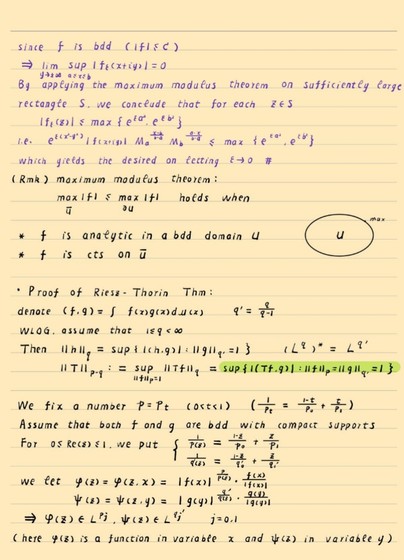 since f is bdd (|f| ≤ C)
⇒ lim sup |fε(x+iy)| = 0
y→±∞ a≤x≤b
By applying the maximum modulus theorem on sufficiently large
rectangle S, we conclude that for each z∈S
|fε(z)| ≤ max { e^{εa²}, e^{εb²} }
i.e. e^{ε(x²-y²)} |f(x+iy)| Ma Mb ≤ max { e^{εa²}, e^{εb²} }
which yields the desired on letting ε→0 #
(Rmk) maximum modulus theorem:
max |f| ≤ max |f| holds when
ū ∂u
max
* f is analytic in a bdd domain U
u
* f is cts on ū
• Proof of Riesz-Thorin Thm:
denote (f,g) = ∫ f(x)g(x)dμ(x) q' = q/(q-1)
WLOG, assume that 1≤q<∞
Then ||h||_q = sup { |(h,g)| : ||g||_q' = 1 } (L^q)* = L^q'
||T||_{p→q} := sup ||Tf||_q = sup { |(Tf,g)| : ||f||_p = ||g||_q' = 1 }
||f||_p=1
We fix a number P = Pt (0<t<1) (1/Pt = (1-t)/P₀ + t/P₁)
Assume that both f and g are bdd with compact supports
For 0≤Re(z)≤1, we put { 1/P(z) = (1-z)/P₀ + z/P₁
1/q'(z) = (1-z)/q₀' + z/q₁'
we let φ(z) = φ(z,x) = |f(x)|^{P/P(z)} · f(x)/|f(x)|
ψ(z) = ψ(z,y) = |g(y)|^{q'/q'(z)} · g(y)/|g(y)|
⇒ φ(z) ∈ L^{Pj}, ψ(z) ∈ L^{qj'} j=0,1
(here φ(z) is a function in variable x and ψ(z) in variable y)